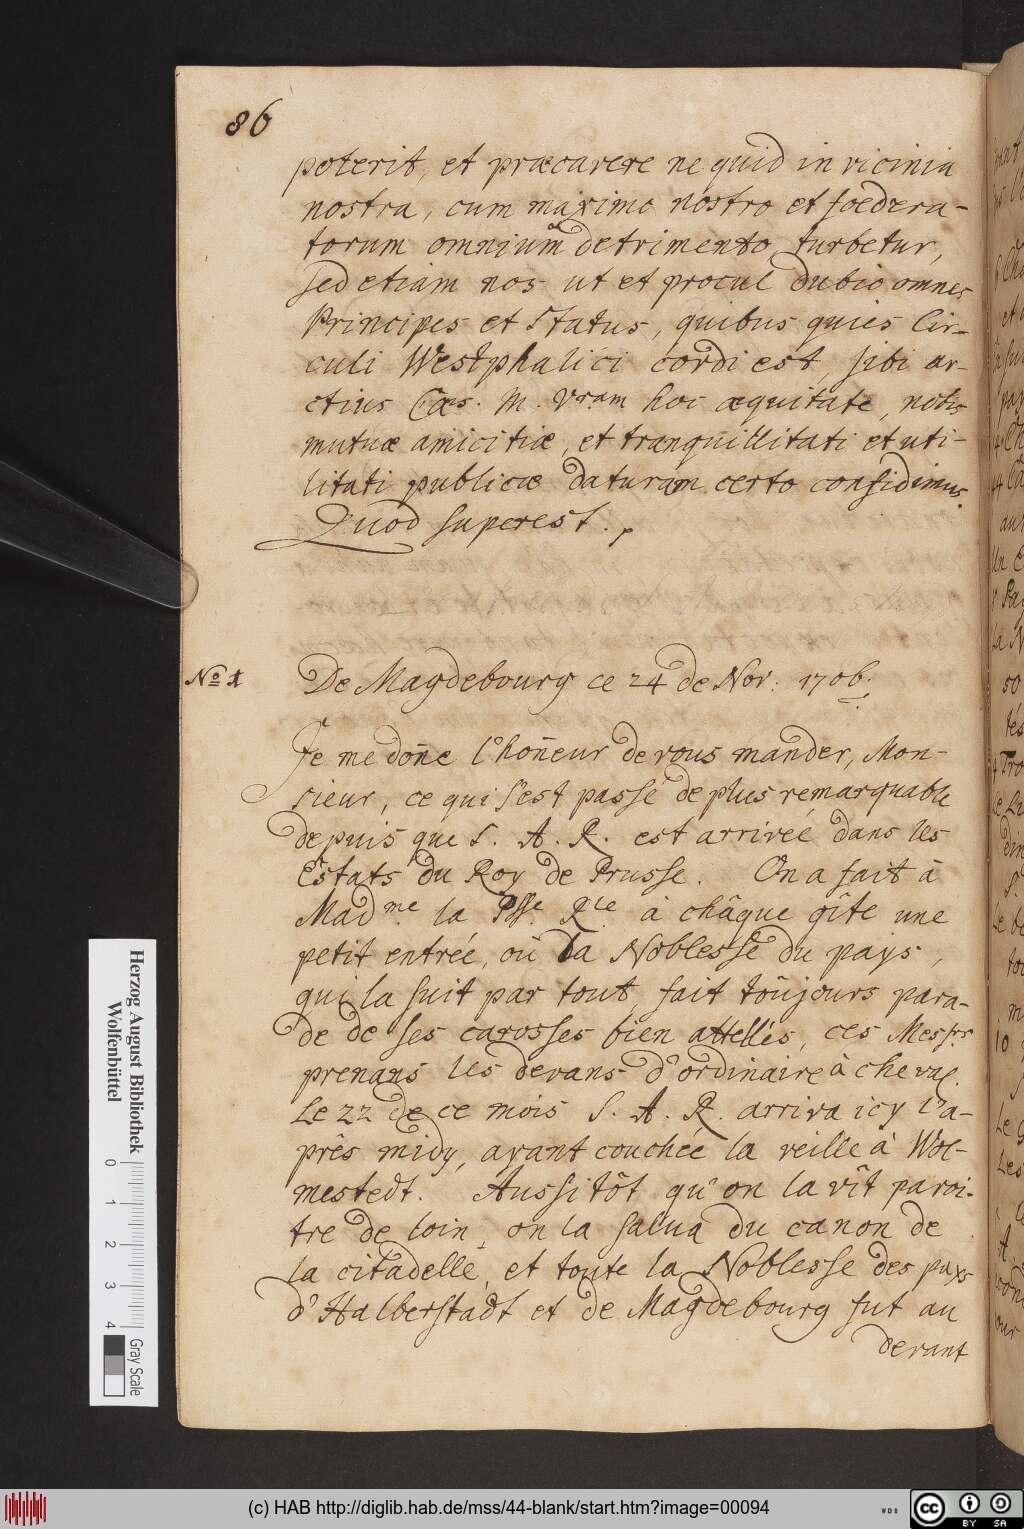 86
poterit, et præcavere ne quid in vicinia
nostra, cum maximo nostro et foedera-
torum omnium detrimento turbetur,
sed etiam nos ut et procul dubio omnes
Principes et Status, quibus quies Cir-
culi Westphalici cordi est, sibi ar-
ctius Cæs. M. Vram hoc æquitate, nobis
mutuæ amicitiæ, et tranquillitati et uti-
litati publicæ daturam certo confidimus.
Quod superest.
No 1
De Magdebourg ce 24 de Nov: 1706.
Je me doñe l'hoñeur de vous mander, Mon-
sieur, ce qui s'est passé de plus remarquable
depuis que S. A. R. est arrivée dans les
Estats du Roy de Prusse. On a fait à
Madme la Psse Rle à châque gîte une
petit entrée, où la Noblesse du pays,
qui la suit par tout, fait toûjours para-
de de ses carosses bien attellés, ces Messrs
prenans les devans d'ordinaire à cheval.
Le 22 de ce mois S. A. R. arriva icy l'a-
près midy, ayant couchée la veille à Wol-
mestedt. Aussitôt qu'on la vît paroi-
tre de loin, on la salua du canon de
la citadelle, et toute la Noblesse des pays
d'Halberstadt et de Magdebourg fut au
devant
Herzog August Bibliothek
Wolfenbüttel
0 1 2 3 4
Gray Scale
(c) HAB http://diglib.hab.de/mss/44-blank/start.htm?image=00094
WDB
cc BY SA